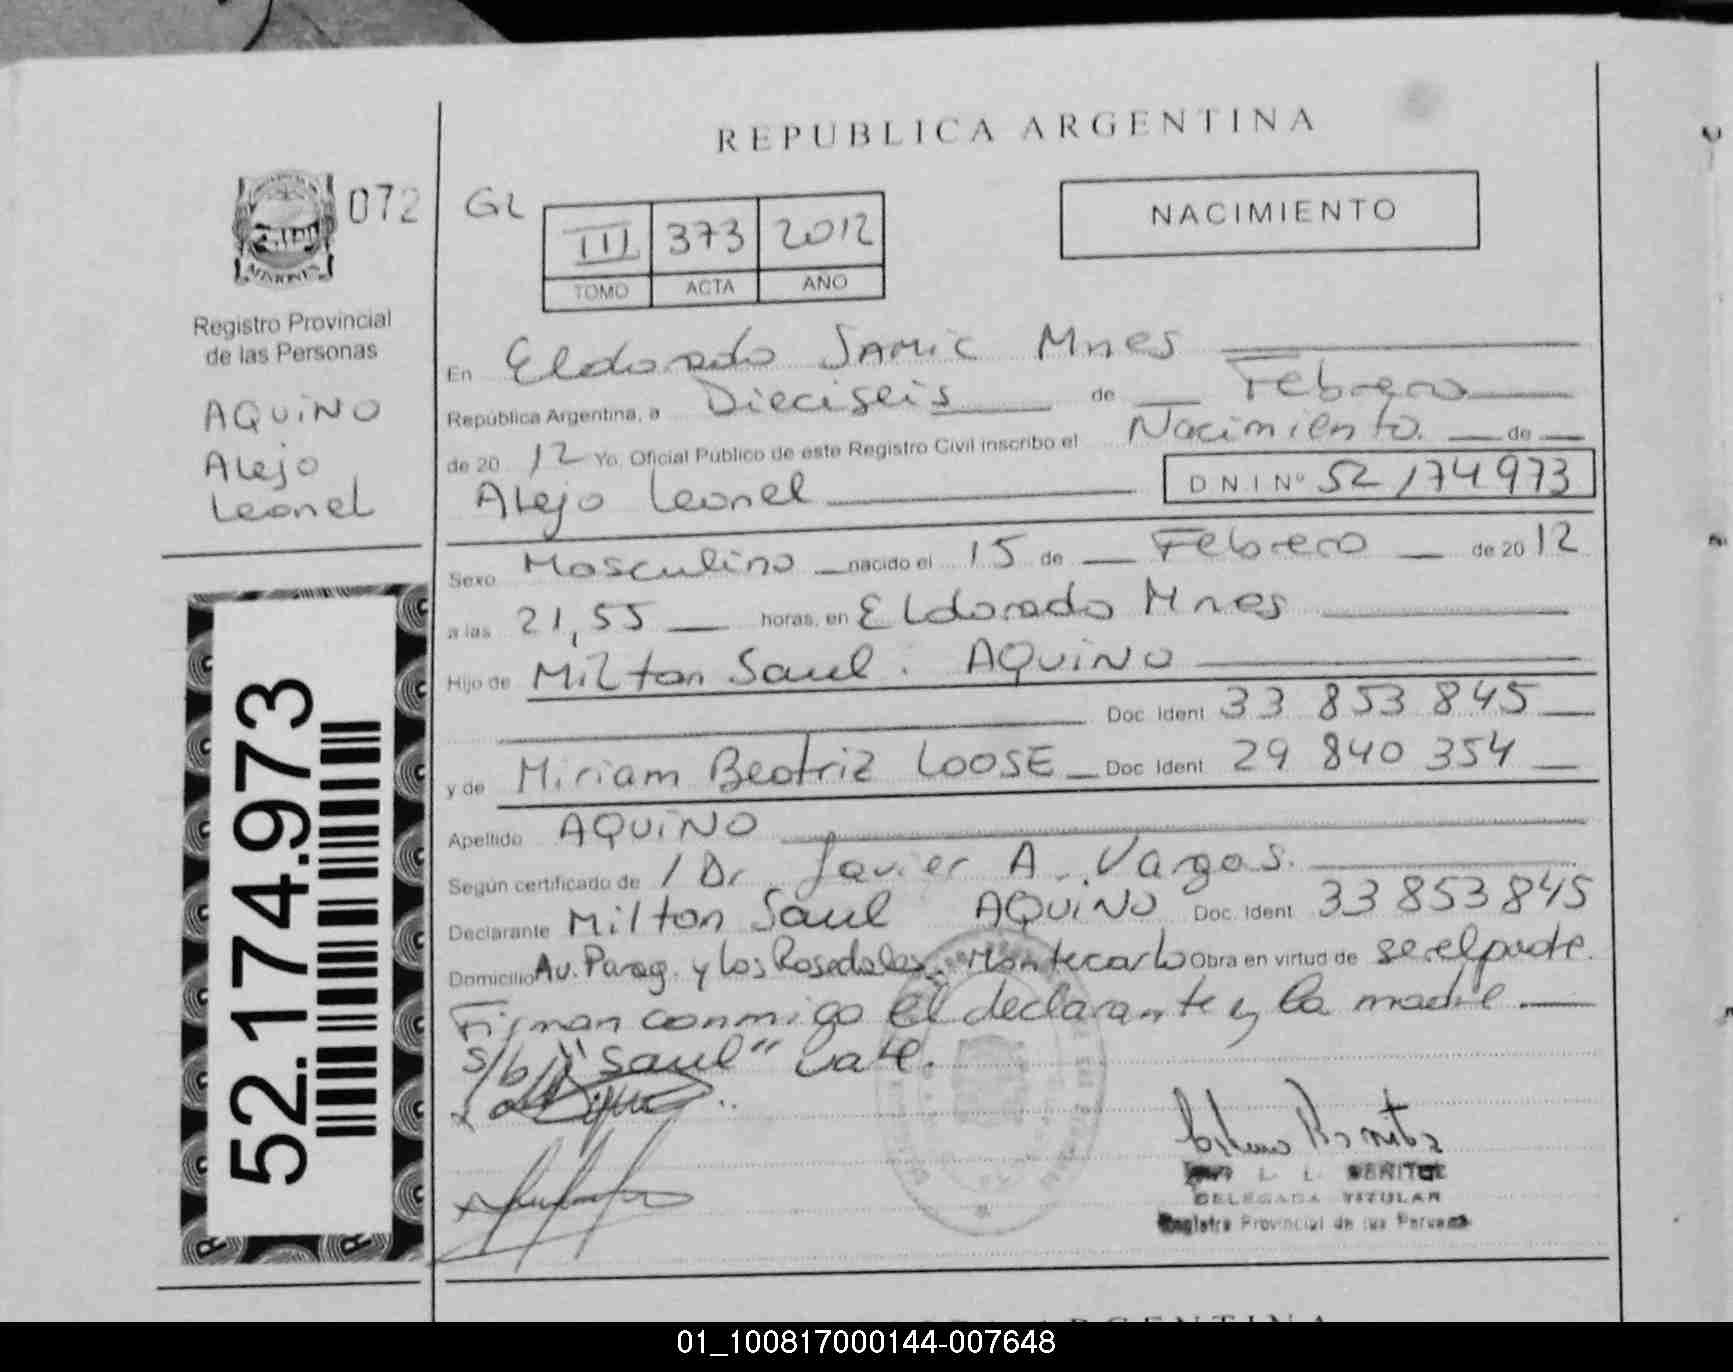 REPUBLICA ARGENTINA
MISIONES
072
GL
III 373 2012
TOMO ACTA AÑO
NACIMIENTO
Registro Provincial
de las Personas
AQUINO
Alejo
Leonel
En Eldorado SAMIC Mnes
República Argentina, a Dieciseis de Febrero
de 20 12 Yo, Oficial Público de este Registro Civil inscribo el Nacimiento de
Alejo Leonel D N I Nº 52 174973
Sexo Masculino nacido el 15 de Febrero de 20 12
a las 21,55 horas, en Eldorado Mnes
Hijo de Milton Saul. AQUINO
Doc Ident 33 853 845
y de Miriam Beatriz LOOSE Doc Ident 29 840 354
Apellido AQUINO
Según certificado de / Dr Javier A. Vargas.
Declarante Milton Saul AQUINO Doc. Ident 33 853 845
Domicilio Av. Parag. y Los Rosedales, Montecarlo Obra en virtud de ser el padre.
Firman conmigo el declarante y la madre
s/b "Saul" Vale.
52.174.973
DELEGADA TITULAR
Registro Provincial de las Personas
01_100817000144-007648